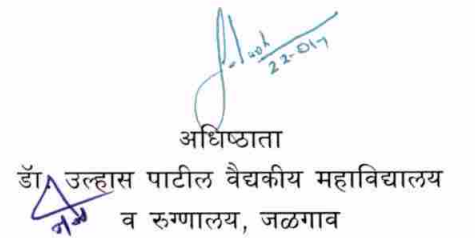 अधिष्ठाता
डॉ. उल्हास पाटील वैद्यकीय महाविद्यालय
व रुग्णालय, जळगाव